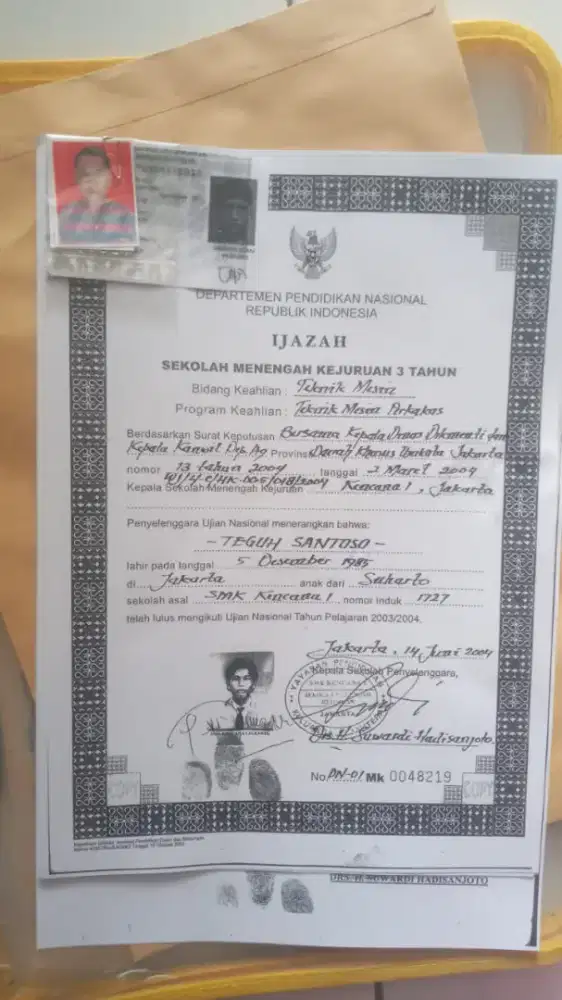 DEPARTEMEN PENDIDIKAN NASIONAL
REPUBLIK INDONESIA
IJAZAH
SEKOLAH MENENGAH KEJURUAN 3 TAHUN
Bidang Keahlian : Teknik Mesin
Program Keahlian : Teknik Mesin Perkakas
Berdasarkan Surat Keputusan Bersama Kepala Dinas Dikmenti dan
Kepala Kanwil Dep. Ag Provinsi Daerah Khusus Ibukota Jakarta
nomor 13 tahun 2004 tanggal 2 Maret 2004
Kepala Sekolah Menengah Kejuruan Kencana 1, Jakarta
Penyelenggara Ujian Nasional menerangkan bahwa:
- TEGUH SANTOSO -
lahir pada tanggal 5 Desember 1985
di Jakarta anak dari Suharto
sekolah asal SMK Kencana 1 nomor induk 1727
telah lulus mengikuti Ujian Nasional Tahun Pelajaran 2003/2004.
Jakarta, 14 Juni 2004
Kepala Sekolah Penyelenggara,
Drs. H. Suwardi Hadisanjoto.
No. DN-01 Mk 0048219
COPY COPY
DRS. H. SUWARDI HADISANJOTO